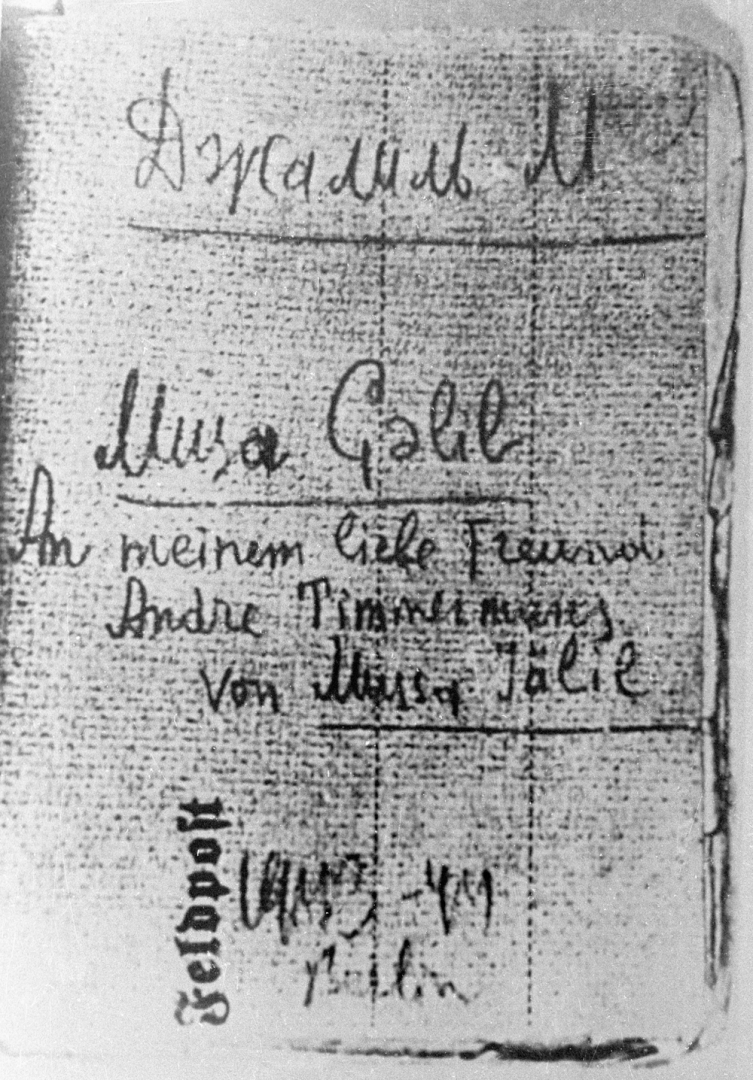 Джалиль М
Musa Çəlil
An meinem liebe Freund
Andre Timmermans
von Mussa Jälil
Feldpoſt
1943-44
Berlin